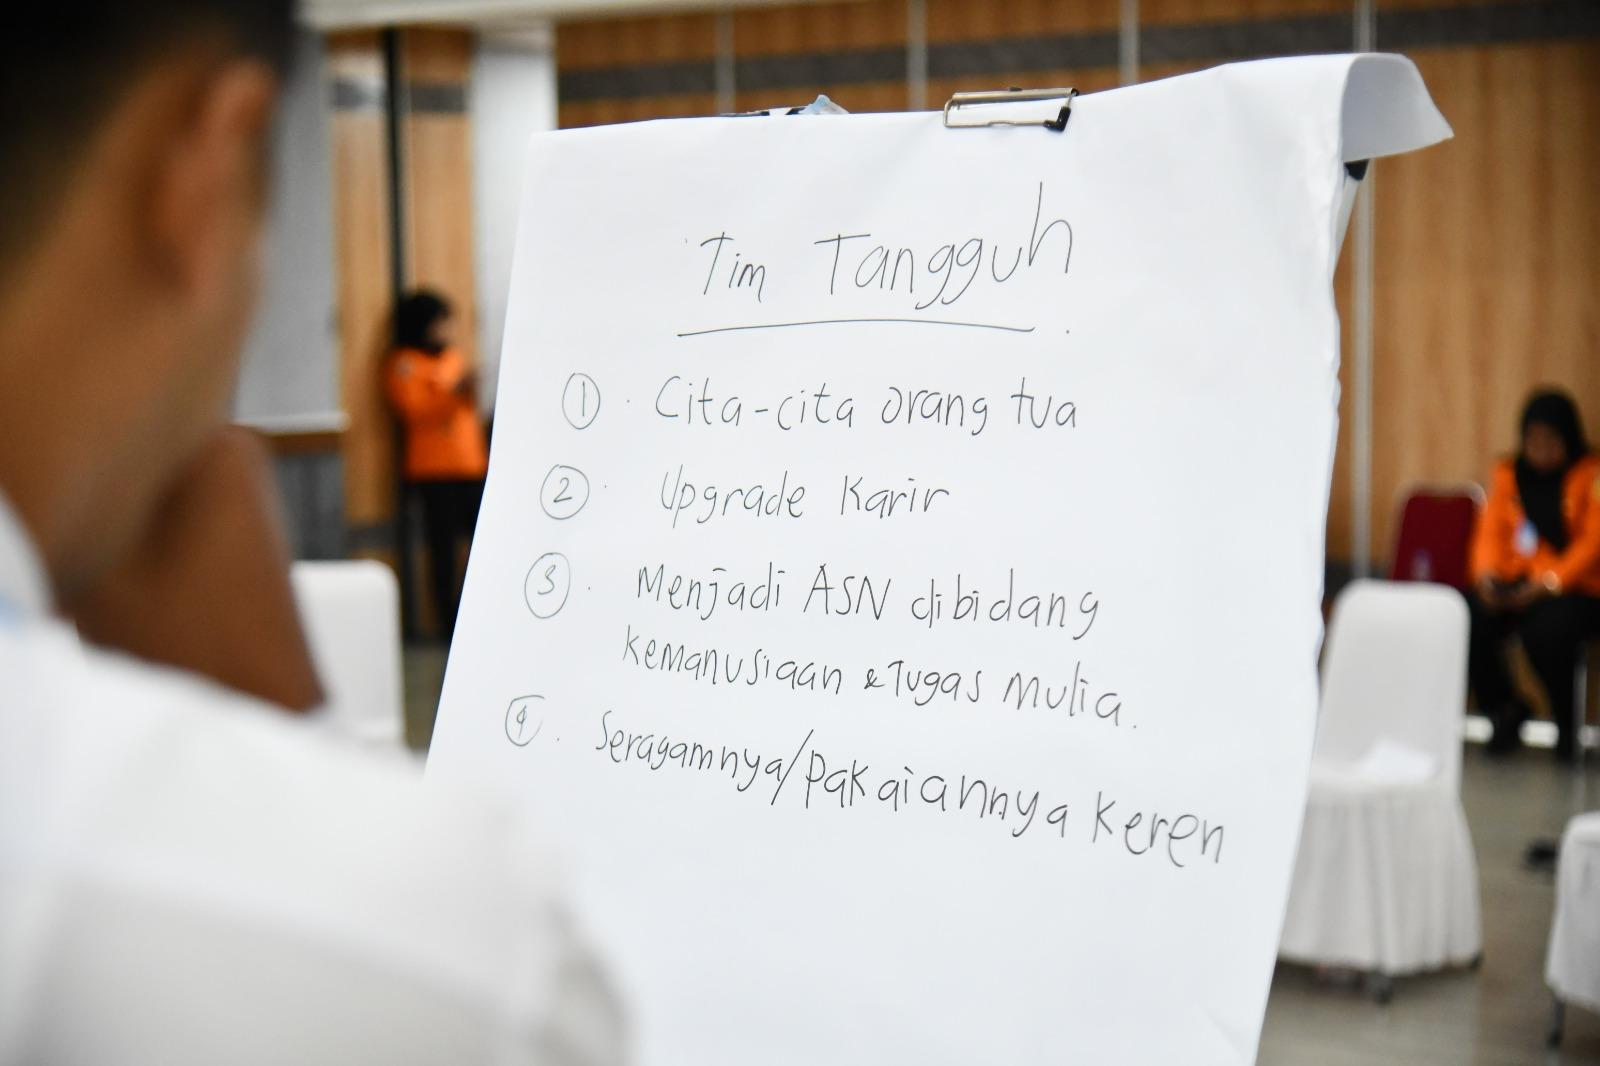 Tim Tangguh
1. Cita-cita orang tua
2. Upgrade Karir
3. Menjadi ASN dibidang
kemanusiaan & Tugas Mulia.
4. Seragamnya/pakaiannya keren